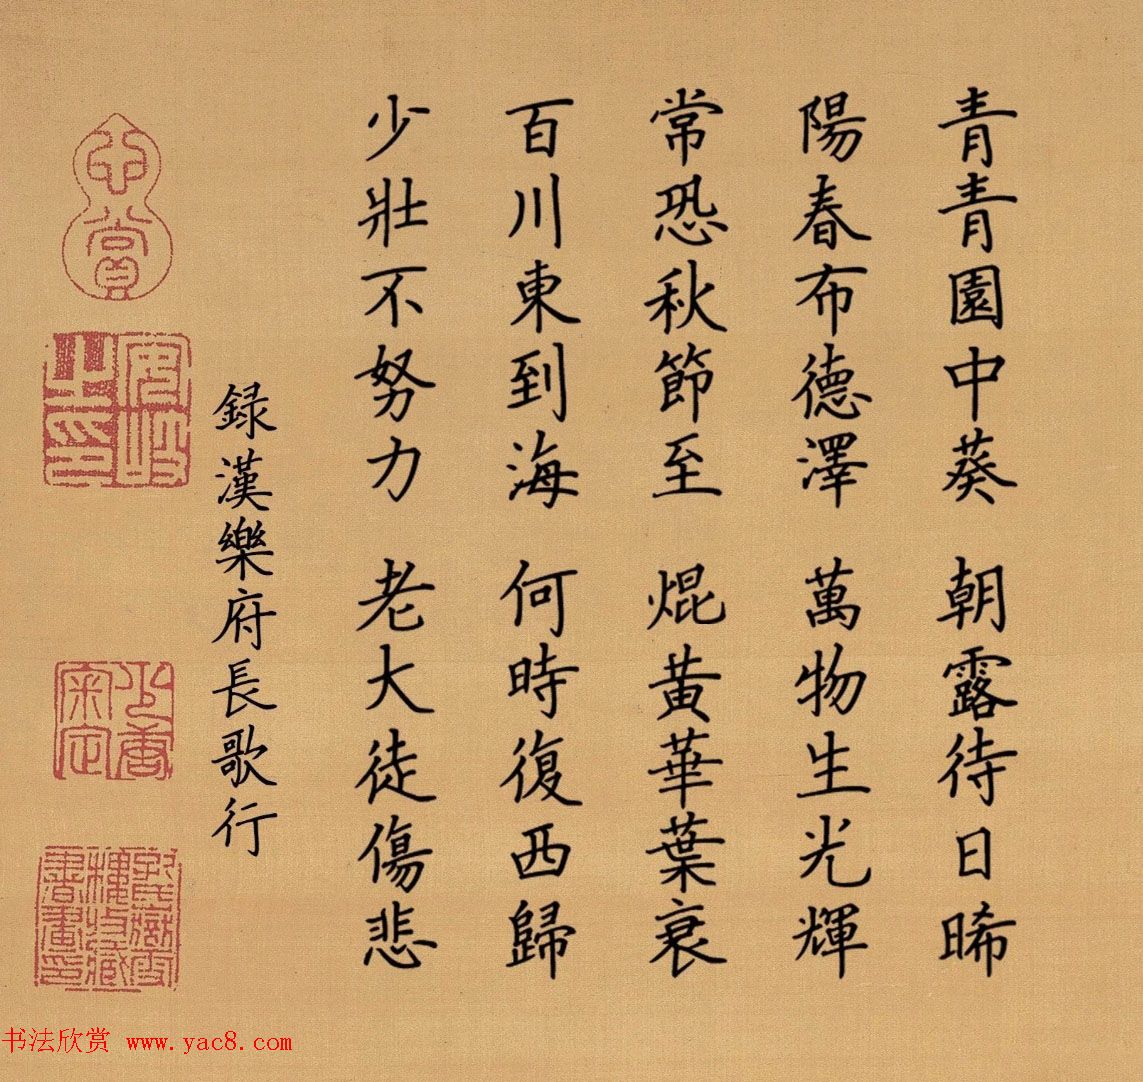 青青園中葵 朝露待日晞
陽春布德澤 萬物生光輝
常恐秋節至 焜黃華葉衰
百川東到海 何時復西歸
少壯不努力 老大徒傷悲
録漢樂府長歌行
书法欣赏 www.yac8.com